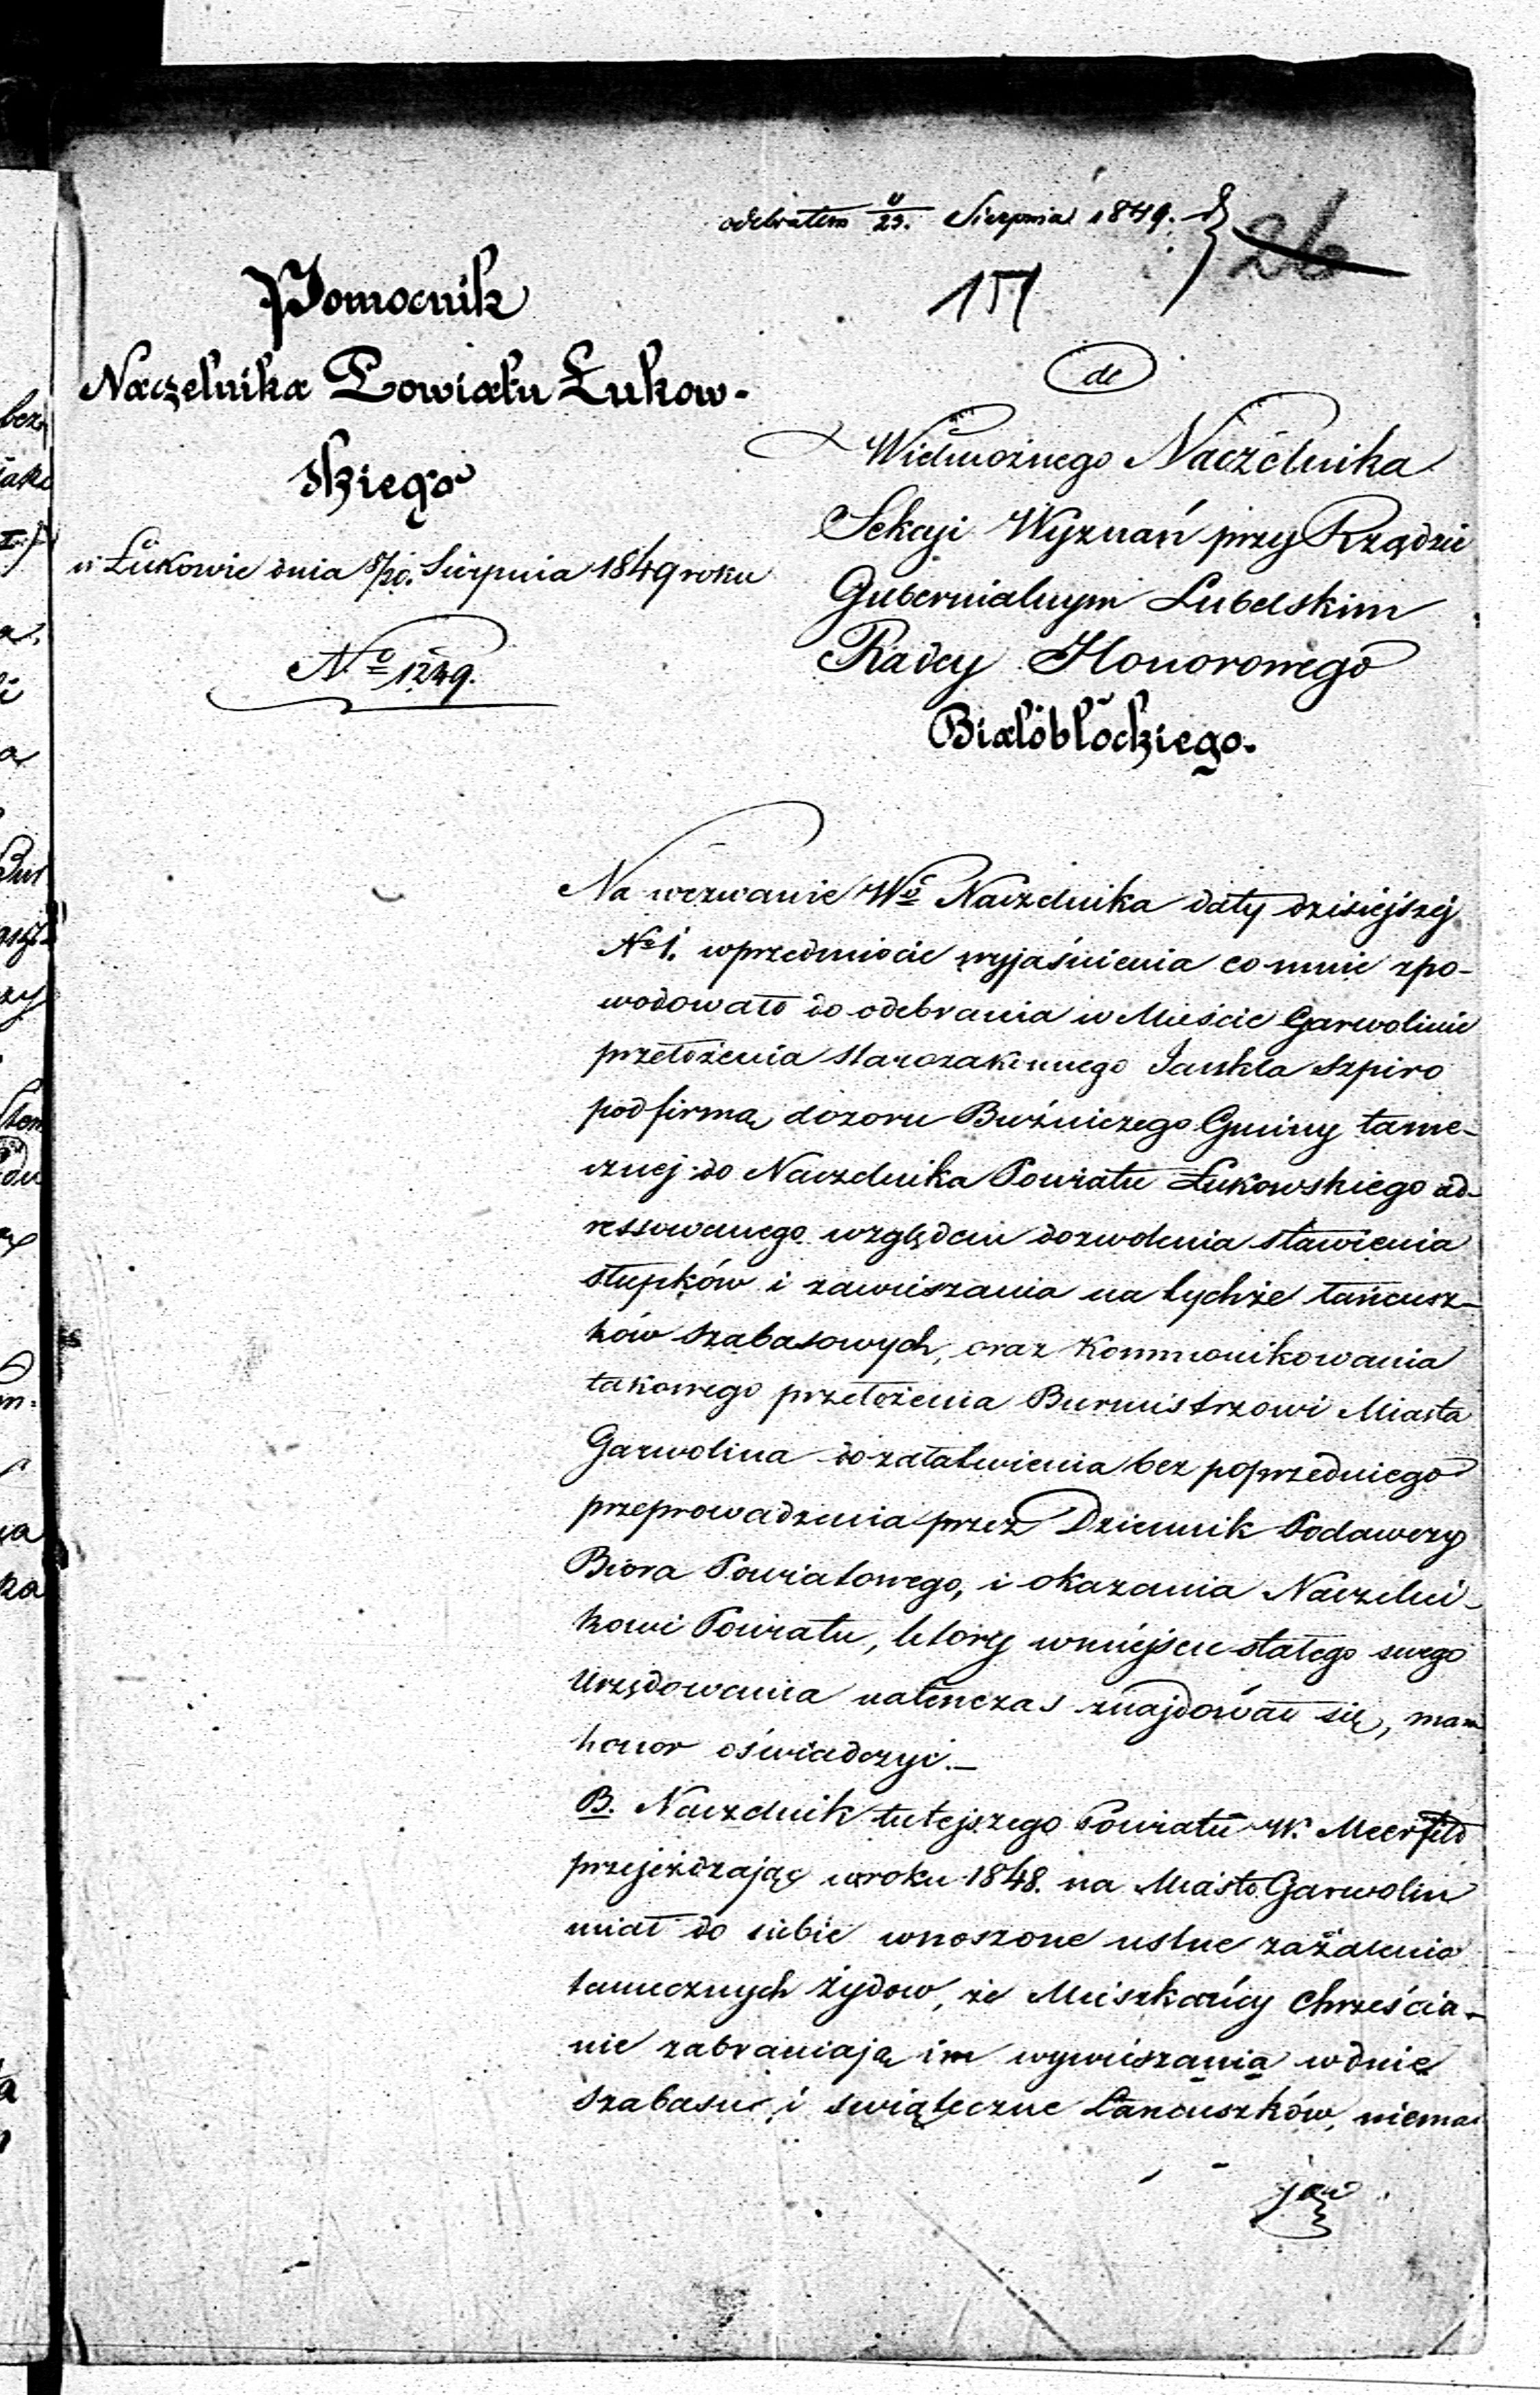 odebrałem 11/23. Sierpnia 1849.
26
151
Pomocnik
Naczelnika Powiatu Łukow-
skiego
w Łukowie dnia 8/20. Sierpnia 1849 roku
No 1249.
do
Wielmożnego Naczelnika
Sekcyi Wyznań przy Rządzie
Gubernialnym Lubelskim
Radcy Honorowego
Białobłockiego.
Na wezwanie Wo Naczelnika daty dzisiejszej
No 1. wprzedmiocie wyjaśnienia co mnie spo-
wodowało do odebrania w Mieście Garwolinie
przełożenia starozakonnego Jankla Szpiro
pod firmą dozoru Bużniczego Gminy tame-
cznej do Naczelnika Powiatu Łukowskiego ad-
ressowanego względem dozwolenia stawienia
słupków i zawieszania na tychże łańcusz-
ków szabasowych, oraz Kommonikowania
takowego przełożenia Burmistrzowi Miasta
Garwolina do załatwienia bez poprzedniego
przeprowadzenia przez Dziennik Podawczy
Biora Powiatowego, i okazania Naczelni-
kowi Powiatu, który wmiejscu stałego swego
Urzędowania natenczas znajdował się, mam
honor oświadczyć.—
B. Naczelnik tutejszego Powiatu W. Meerfeld
przejeżdzając wroku 1848. na Miasto Garwolin
miał do siebie wnoszone ustne zażalenia
tamecznych żydow, że Mieszkańcy Chrześcia-
nie zabraniają im wywieszania wdnie
szabasu i swiąteczne Łancuszków, niema
jąc